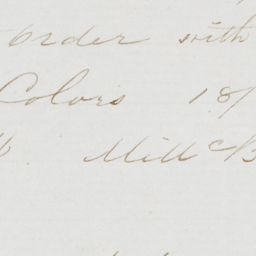 order with
Colors 18
Mill